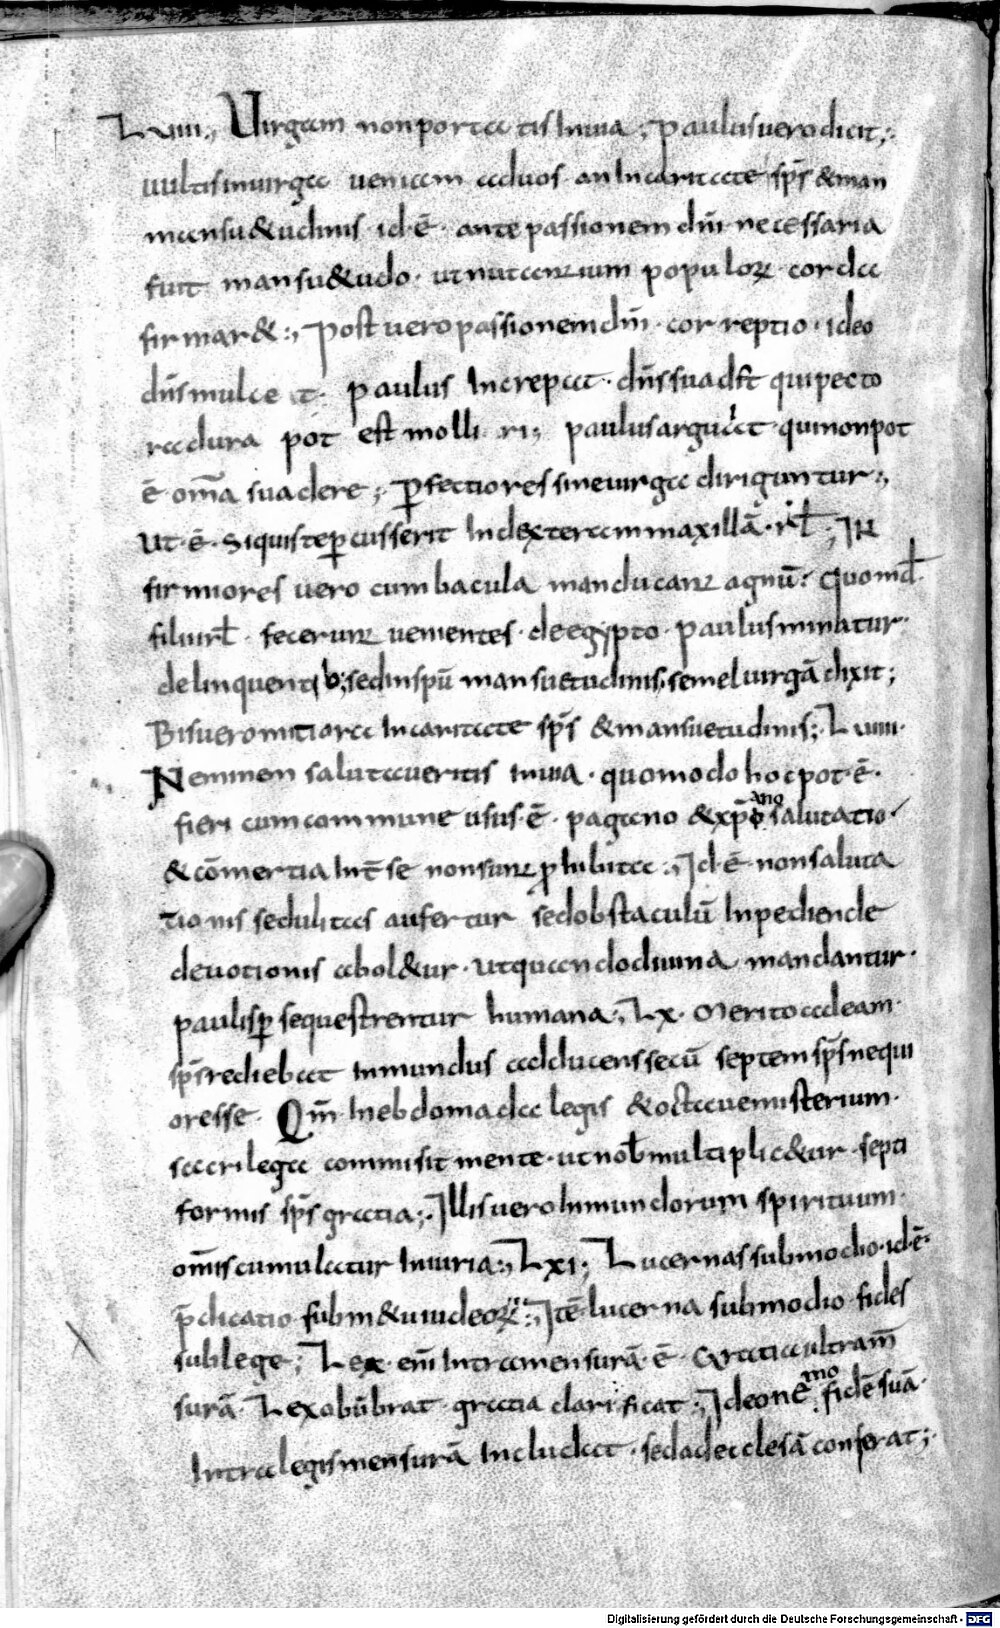 Lviii., Virgam non portatis in uia ; paulus uero dicit ;
uultis in uirga ueniam ad uos · an in caritate sp̄s & man
mansu&udinis · id · ē · ante passionem dn̄i necessaria
fuit mansu&udo · ut nutantium populoꝝ corda
firmar& ; Post uero passionem dn̄i · correptio · ideo
dn̄s mulce t · paulus increpat · dn̄s suad& qui pecto
ra dura pot est molli ri ; paulus arguat · qui non pot
ē om̄a suadere ; Perfectiores sine uirga diriguntur ;
Ut · ē · Si quis te ꝑcusserit in dexteram maxillā · rl̄ ; In
firmiores uero cum bacula manducant agnū · Quomd̄ ·
filii irl̄ · fecerunt uenientes · de egypto · paulus minatur ·
delinquentib; sed in spū mansuetudinis ; semel uirgā dixit ;
Bis uero mitiora in caritate sp̄s & mansuetudinis ; Lviiii ·
Neminem salutaueritis in uia · quomodo hoc pot · ē ·
fieri cum commune usus · ē · pagano & xp̄ano salutatio ·
& cōmertia int̄ se non sunt ꝓhibita ; Id · ē · non saluta
tionis sedulitas aufertur sed obstaculū inpediende
deuotionis abol&ur · ut quando diuina mandantur ·
paulisꝑ sequestrentur humana ; Lx · Merito ad eam ·
sp̄s rediebat inmundus adducens secū septem sp̄s nequi
ores se · Qm̄ in ebdomada legis & octaue misterium ·
sacrilega commisit mente · ut nob̄ multiplic&ur · septi
formis sp̄s gratia ; Illis uero inmundorum spirituum ·
om̄is cumulatur iniuria ; Lxi ; Lucernas sub modio · id · ē ·
p̄dicatio · sub m&u iudeoꝝ ; Itē lucerna sub modio · fides
sub lege ; Lex · em̄ intra mensurā · ē · Gratia ultra m̄
surā · Lex obūbrat · gratia clarificat ; Ideo nēmo fidē suā ·
Intra legis mensurā includat · sed ad ecclesā conferat ;
Digitalisierung gefördert durch die Deutsche Forschungsgemeinschaft · DFG